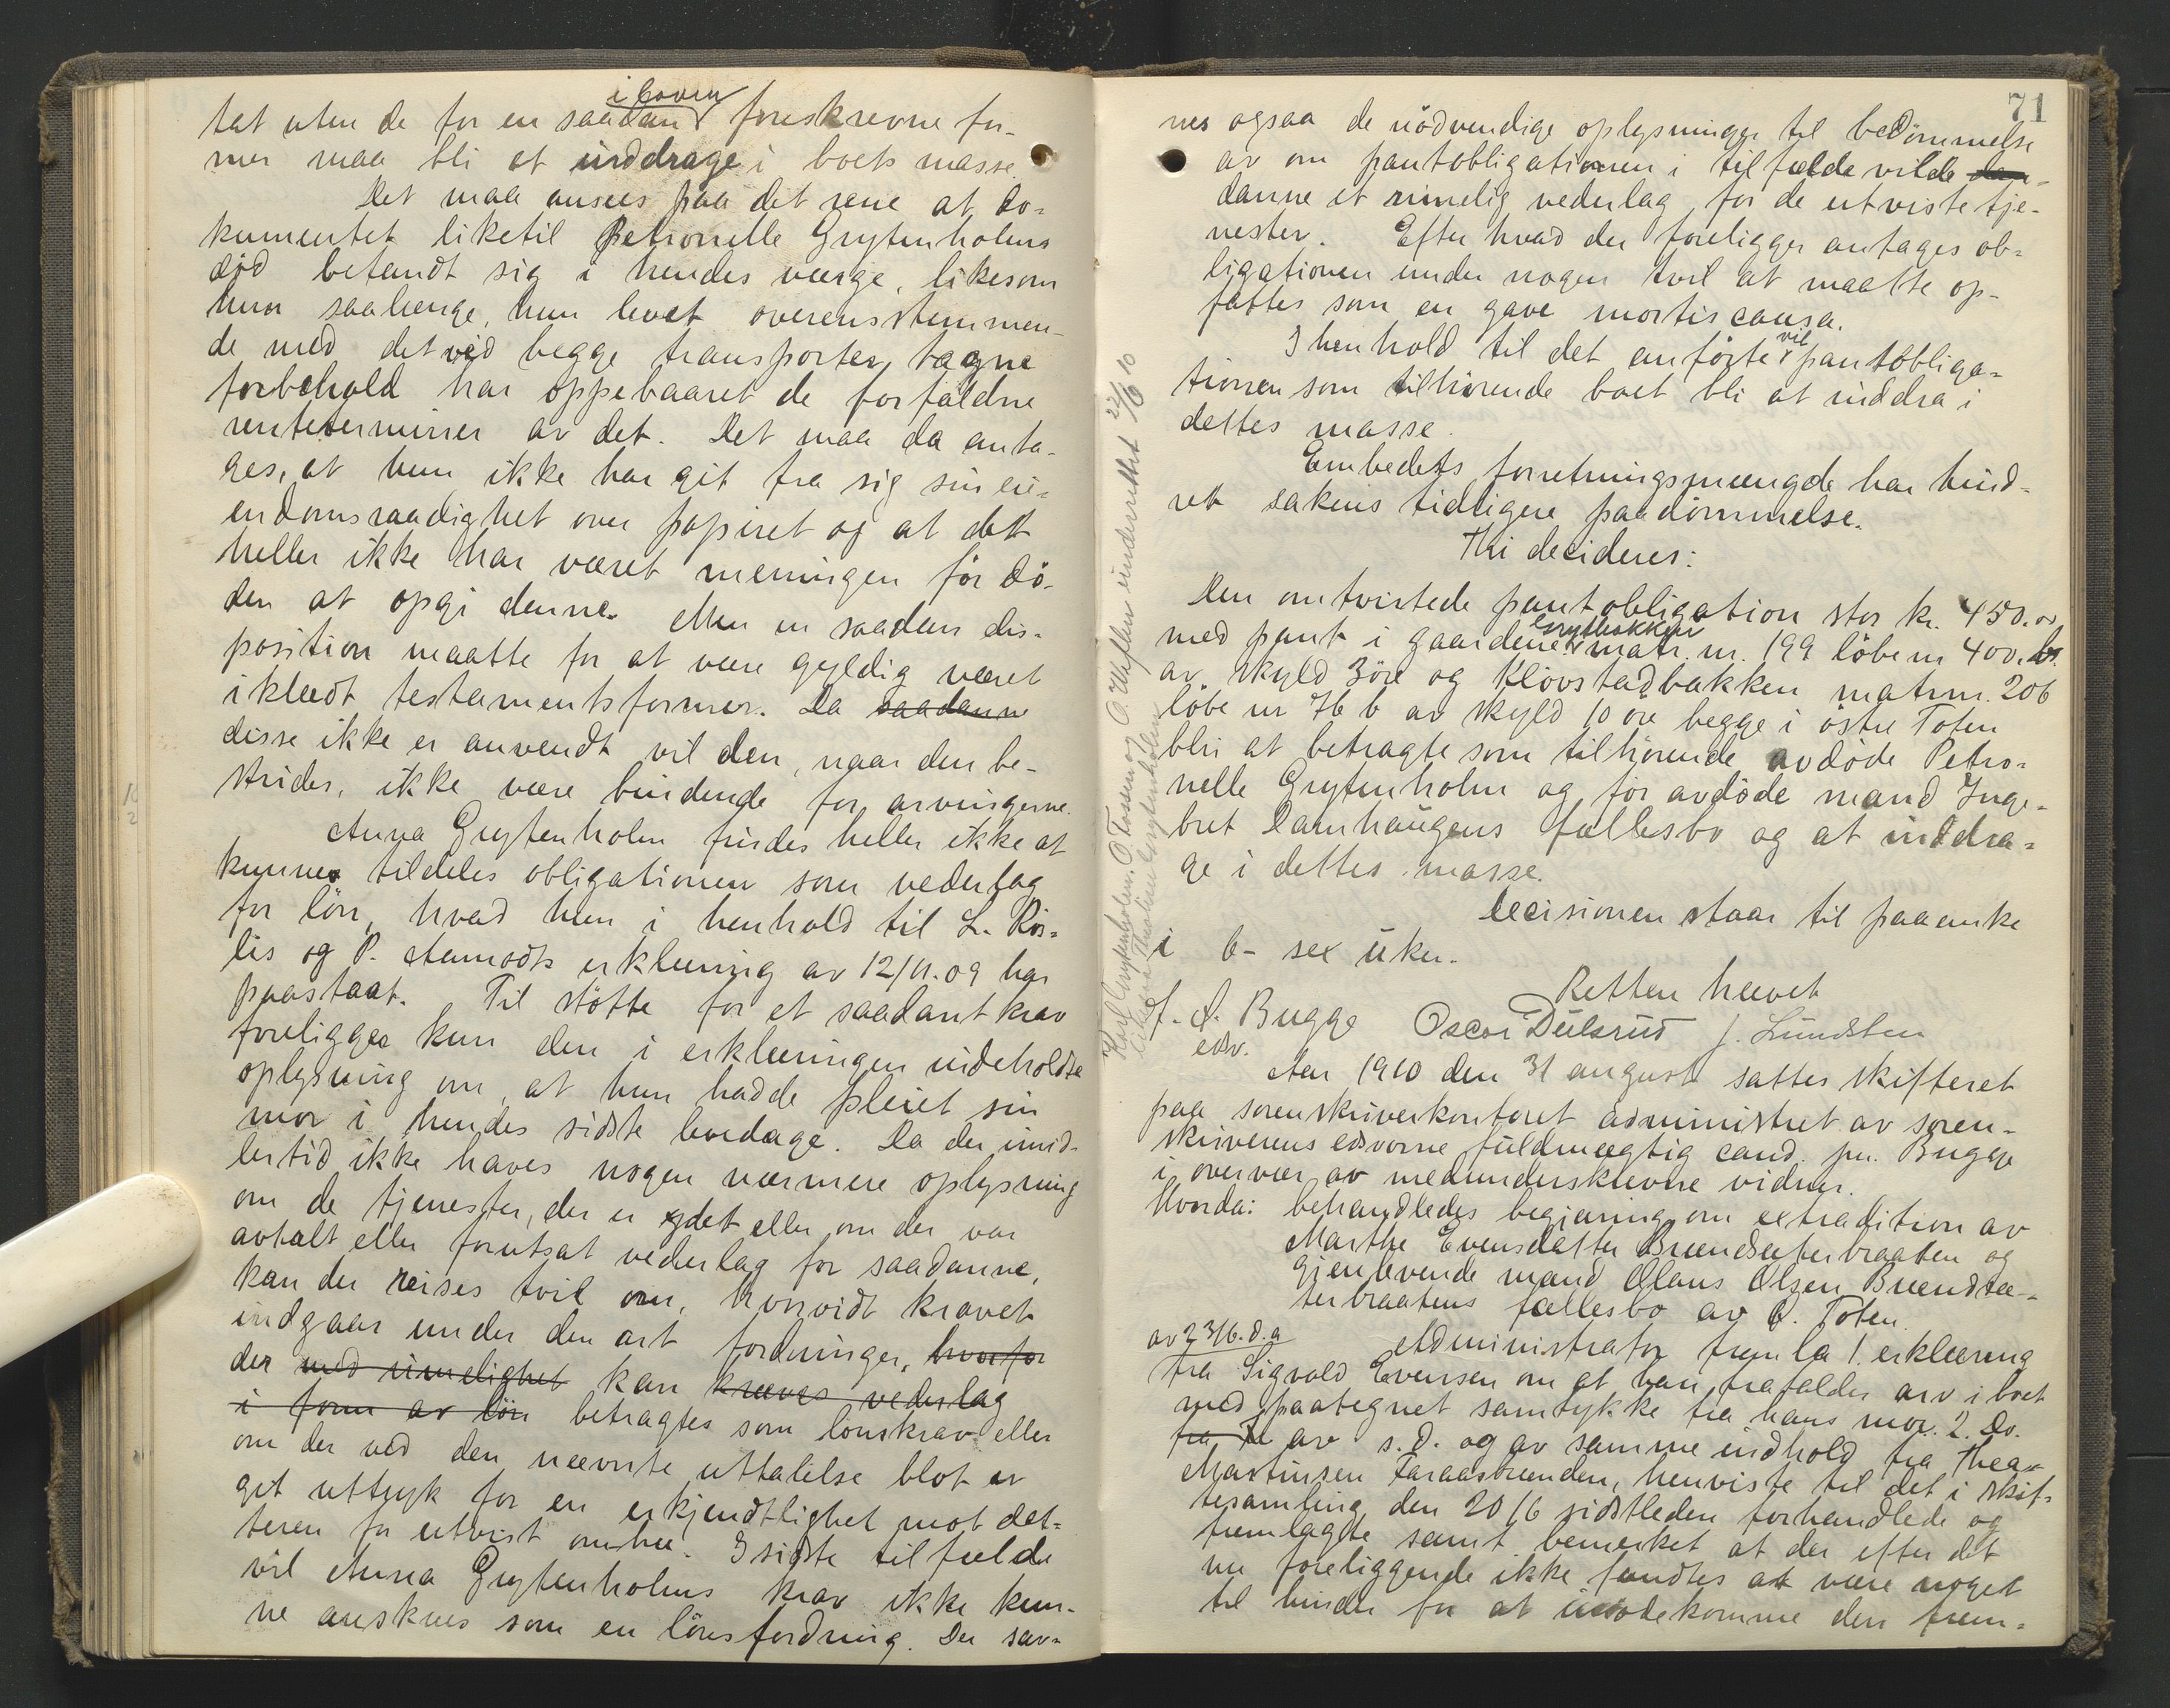 i loven
tat uten de for en saadan foreskrevne for-
mer maa bli at inddrage i boets masse.
Det maa ansees paa det rene at do-
kumentet liketil Petronelle Grytenholms
död befandt sig i hendes værge, likesom
hun saalænge, hun levet overensstemmen-
de med det ved begge transporter tagne
forbehold har oppebaaret de forfaldne
renteterminer av det. Det maa da anta-
ges, at hun ikke har git fra sig sin ei-
endomsraadighet over papiret og at det
heller ikke har været meningen för dö-
den at opgi denne. Men en saadan dis-
position maatte for at være gyldig været
iklædt testamentsformer. Da saadanne
disse ikke er anvendt vil den, naar den be-
strides, ikke være bindende for arvingerne.
Anna Grytenholm findes heller ikke at
kunne tildeles obligationen som vederlag
for lön, hvad hun i henhold til L. Ros-
lis og P. Aamodts erklæring av 12/11.09 har
paastaat. Til stötte for et saadant krav
foreligger kun den i erklæringen indeholdte
oplysning om, at hun hadde pleiet sin
mor i hendes sidste levedage. Da der imid-
lertid ikke haves nogen nærmere oplysning
om de tjenester, der er ydet eller om der var
avtalt eller forutsat vederlag for saadanne,
kan der reises tvil om, hvorvidt kravet
indgaar under den art fordringer, hvorfor
der med rimelighet kan kræves vederlag
i form av lön betragtes som lönskrav eller
om der ved den nævnte uttalelse blot er
git uttryk for en erkjendtlighet mot dat-
teren for utvist omhu. I sidste tilfælde
vil Anna Grytenholms krav ikke kun-
ne ansknes som en lönsfordring. Der sav-
71
nes ogsaa de nödvendige oplysninger til bedömmelse
av om pantobligationen i tilfælde vilde dan-
danne et rimelig vederlag for de utviste tje-
nester. Efter hvad der foreligger antages ob-
ligationen under nogen tvil at maatte op-
fattes som en gave mortis causa.
I henhold til det anförte vil pantobliga-
tionen som tilhörende boet bli at inddra i
dettes masse.
Embedets forretningsmængde har hind-
ret sakens tidligere paadömmelse.
Thi decideres:
Den omtvistede pantobligation stor kr. 450.00
med pant i gaardene Grytbakken matr. nr. 199 löbenr 400. b.
av skyld 3 öre og Klövstadbakken matrnr. 206
löbe nr 76 b av skyld 10 öre begge i östre Toten
bli at betragte som tilhörende avdöde Petro-
nelle Grytenholm og för avdöde mand Inge-
bret Damhaugens fællesbo og at inddra-
ge i dettes masse.
Decisionen staar til paaanke
i 6- sex uker.
Retten hævet
J. A. Bugge Oscar Dulsrud J. Lundsten
edsv.
Aar 1910 den 31 august sattes skifteret
paa sorenskriverkontoret administret av soren-
skriverens edsvorne fuldmægtig cand. jur. Bugge
i overvær av medunderskrevne vidner.
Hvorda: behandledes begjæring om extradition av
Marthe Evensdatter Brændsæterbraaten og
gjenlevende mand Olaus Olsen Brændsæ-
terbraatens fællesbo av Ö. Toten.
Administrator fremla 1. erklæring
av 23/6. d.a
fra Sigvald Evensen om at han frafalder arv i boet
med paategnet samtykke fra hans mor. 2. Do.
fra Th av s.d. og av samme indhold fra Thea
Martinsen Faraasbrænden, henviste til det i skif-
tesamling den 20/6 sidstleden forhandlede og
fremlagte samt bemerket at der efter det
nu foreliggende ikke fandtes at være noget
til hinder for at imödekomme den frem-